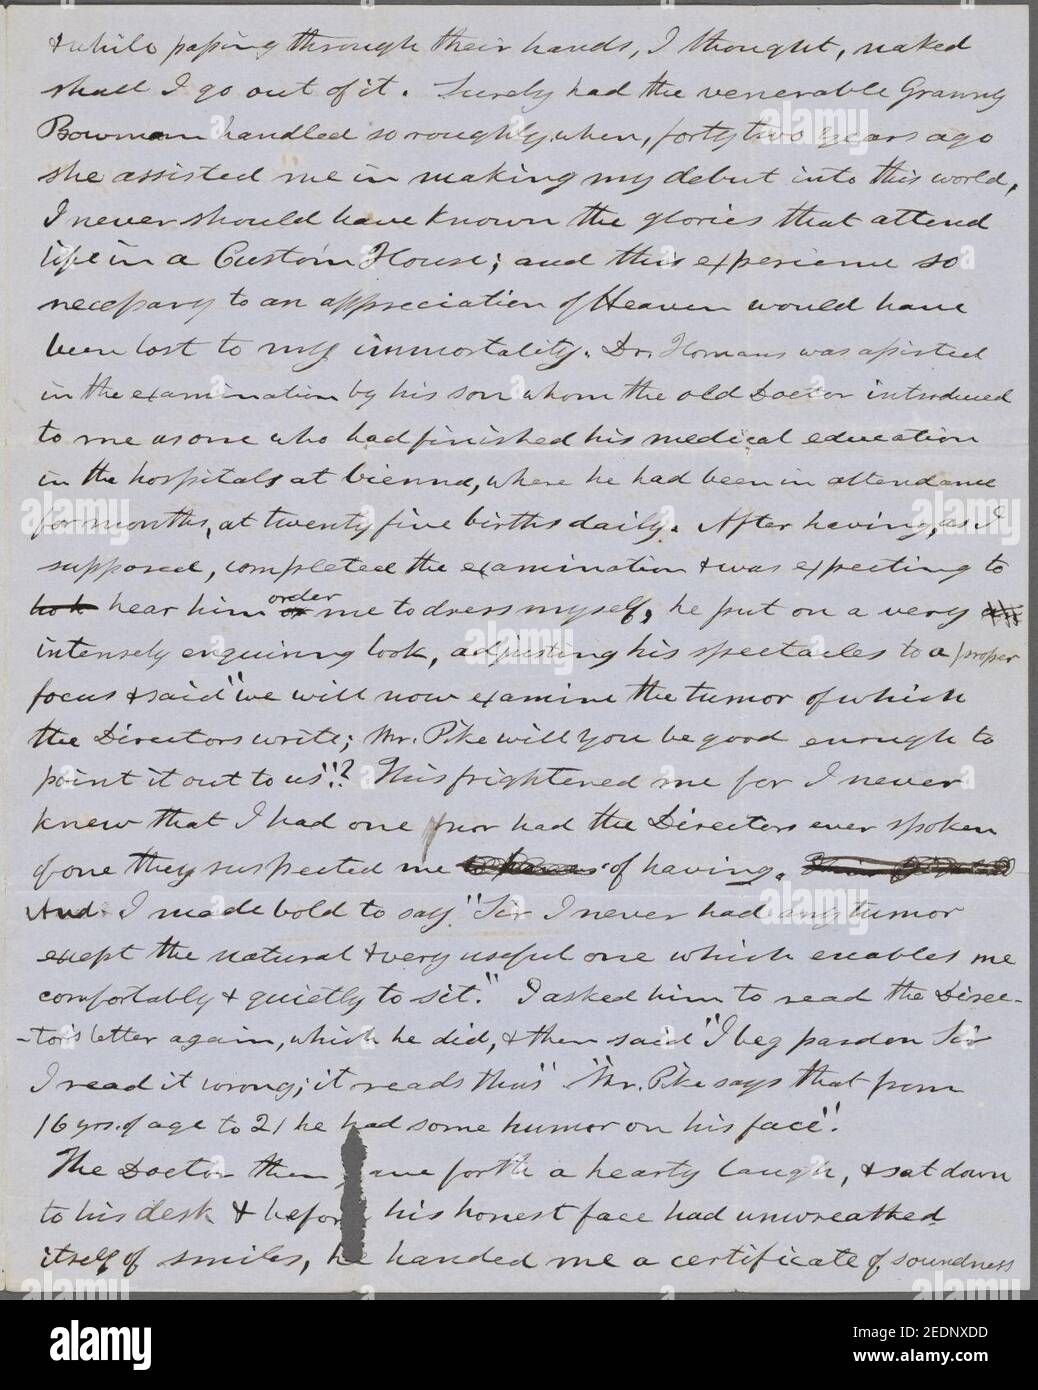 & while passing through their hands, I thought, naked
shall I go out of it. Surely had the venerable Granny
Bowman handled so roughly, when, forty two years ago
she assisted me in making my debut into this world,
I never should have known the glories that attend
life in a Custom House; and this experience so
necessary to an appreciation of Heaven would have
been lost to my immortality. Dr. Homans was assisted
in the examination by his son whom the old Doctor introduced
to me as one who had finished his medical education
in the hospitals at Vienna, where he had been in attendance
for months, at twenty five births daily. After having, as I
supposed, completed the examination & was expecting to
hear him order me to dress myself, he put on a very
intensely enquiring look, adjusting his spectacles to a proper
focus & said "we will now examine the tumor of which
the Directors write; Mr. Pike will you be good enough to
point it out to us"? This frightened me for I never
knew that I had one nor had the Directors ever spoken
of one they suspected me of having.
And I made bold to say "Sir I never had any tumor
except the natural & very useful one which enables me
comfortably & quietly to sit." I asked him to read the Direc-
-tor's letter again, which he did, & then said "I beg pardon Sir
I read it wrong; it reads thus" "Mr. Pike says that from
16 yrs. of age to 21 he had some humor on his face".
The Doctor then gave forth a hearty laugh, & sat down
to his desk & before his honest face had unwreathed
itself of smiles, he handed me a certificate of soundness
alamy
Image ID: 2EDNXDD
www.alamy.com